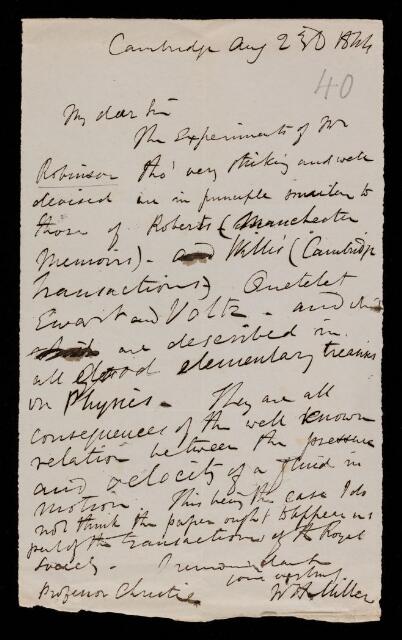 Cambridge Aug 23d 1844
40
My dear Sir
The Experiments of Mr
Robinson tho' very striking and well
devised are in principle similar to
those of Roberts (Manchester
Memoirs) - and Willis (Cambridge
Transactions) Quetelet
Ewart and Voltz - and
are described in
all good elementary treatises
on Physics. They are all
consequences of the well known
relation between the pressure
and velocity of a fluid in
motion. This being the case I do
not think the paper ought to appear as
part of the transactions of the Royal
Society. I remain dear
yours very truly
Professor Christie W H Miller